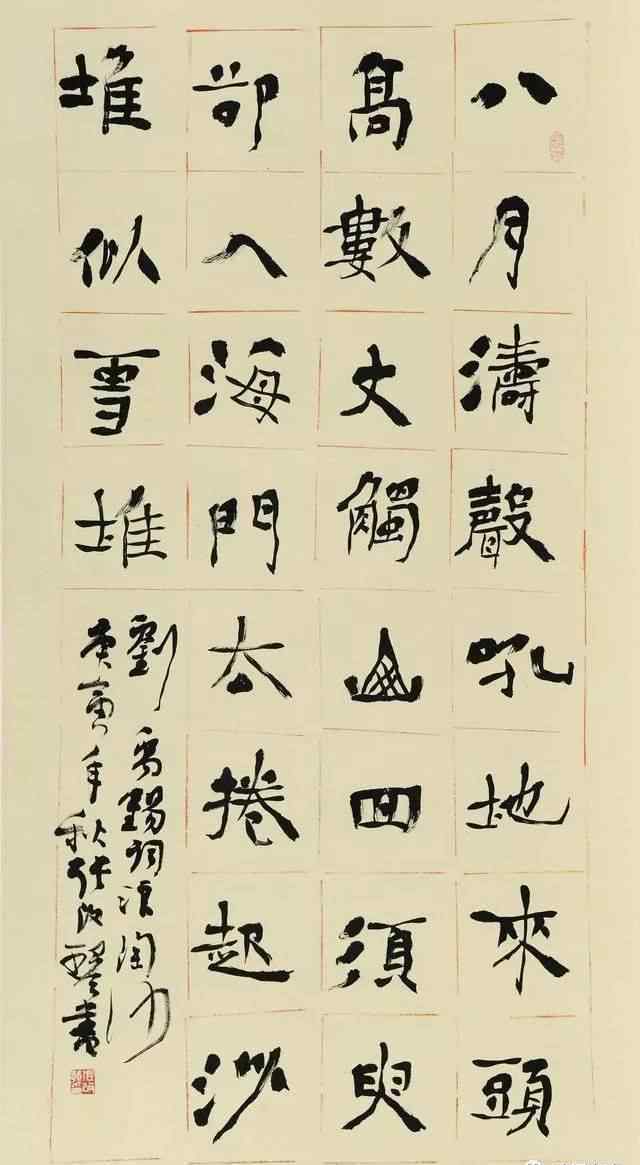 八月濤聲吼地來頭
高數丈觸山回須臾
卻入海門去捲起沙
堆似雪堆
劉禹錫詞浪淘沙
庚寅年秋張改琴書